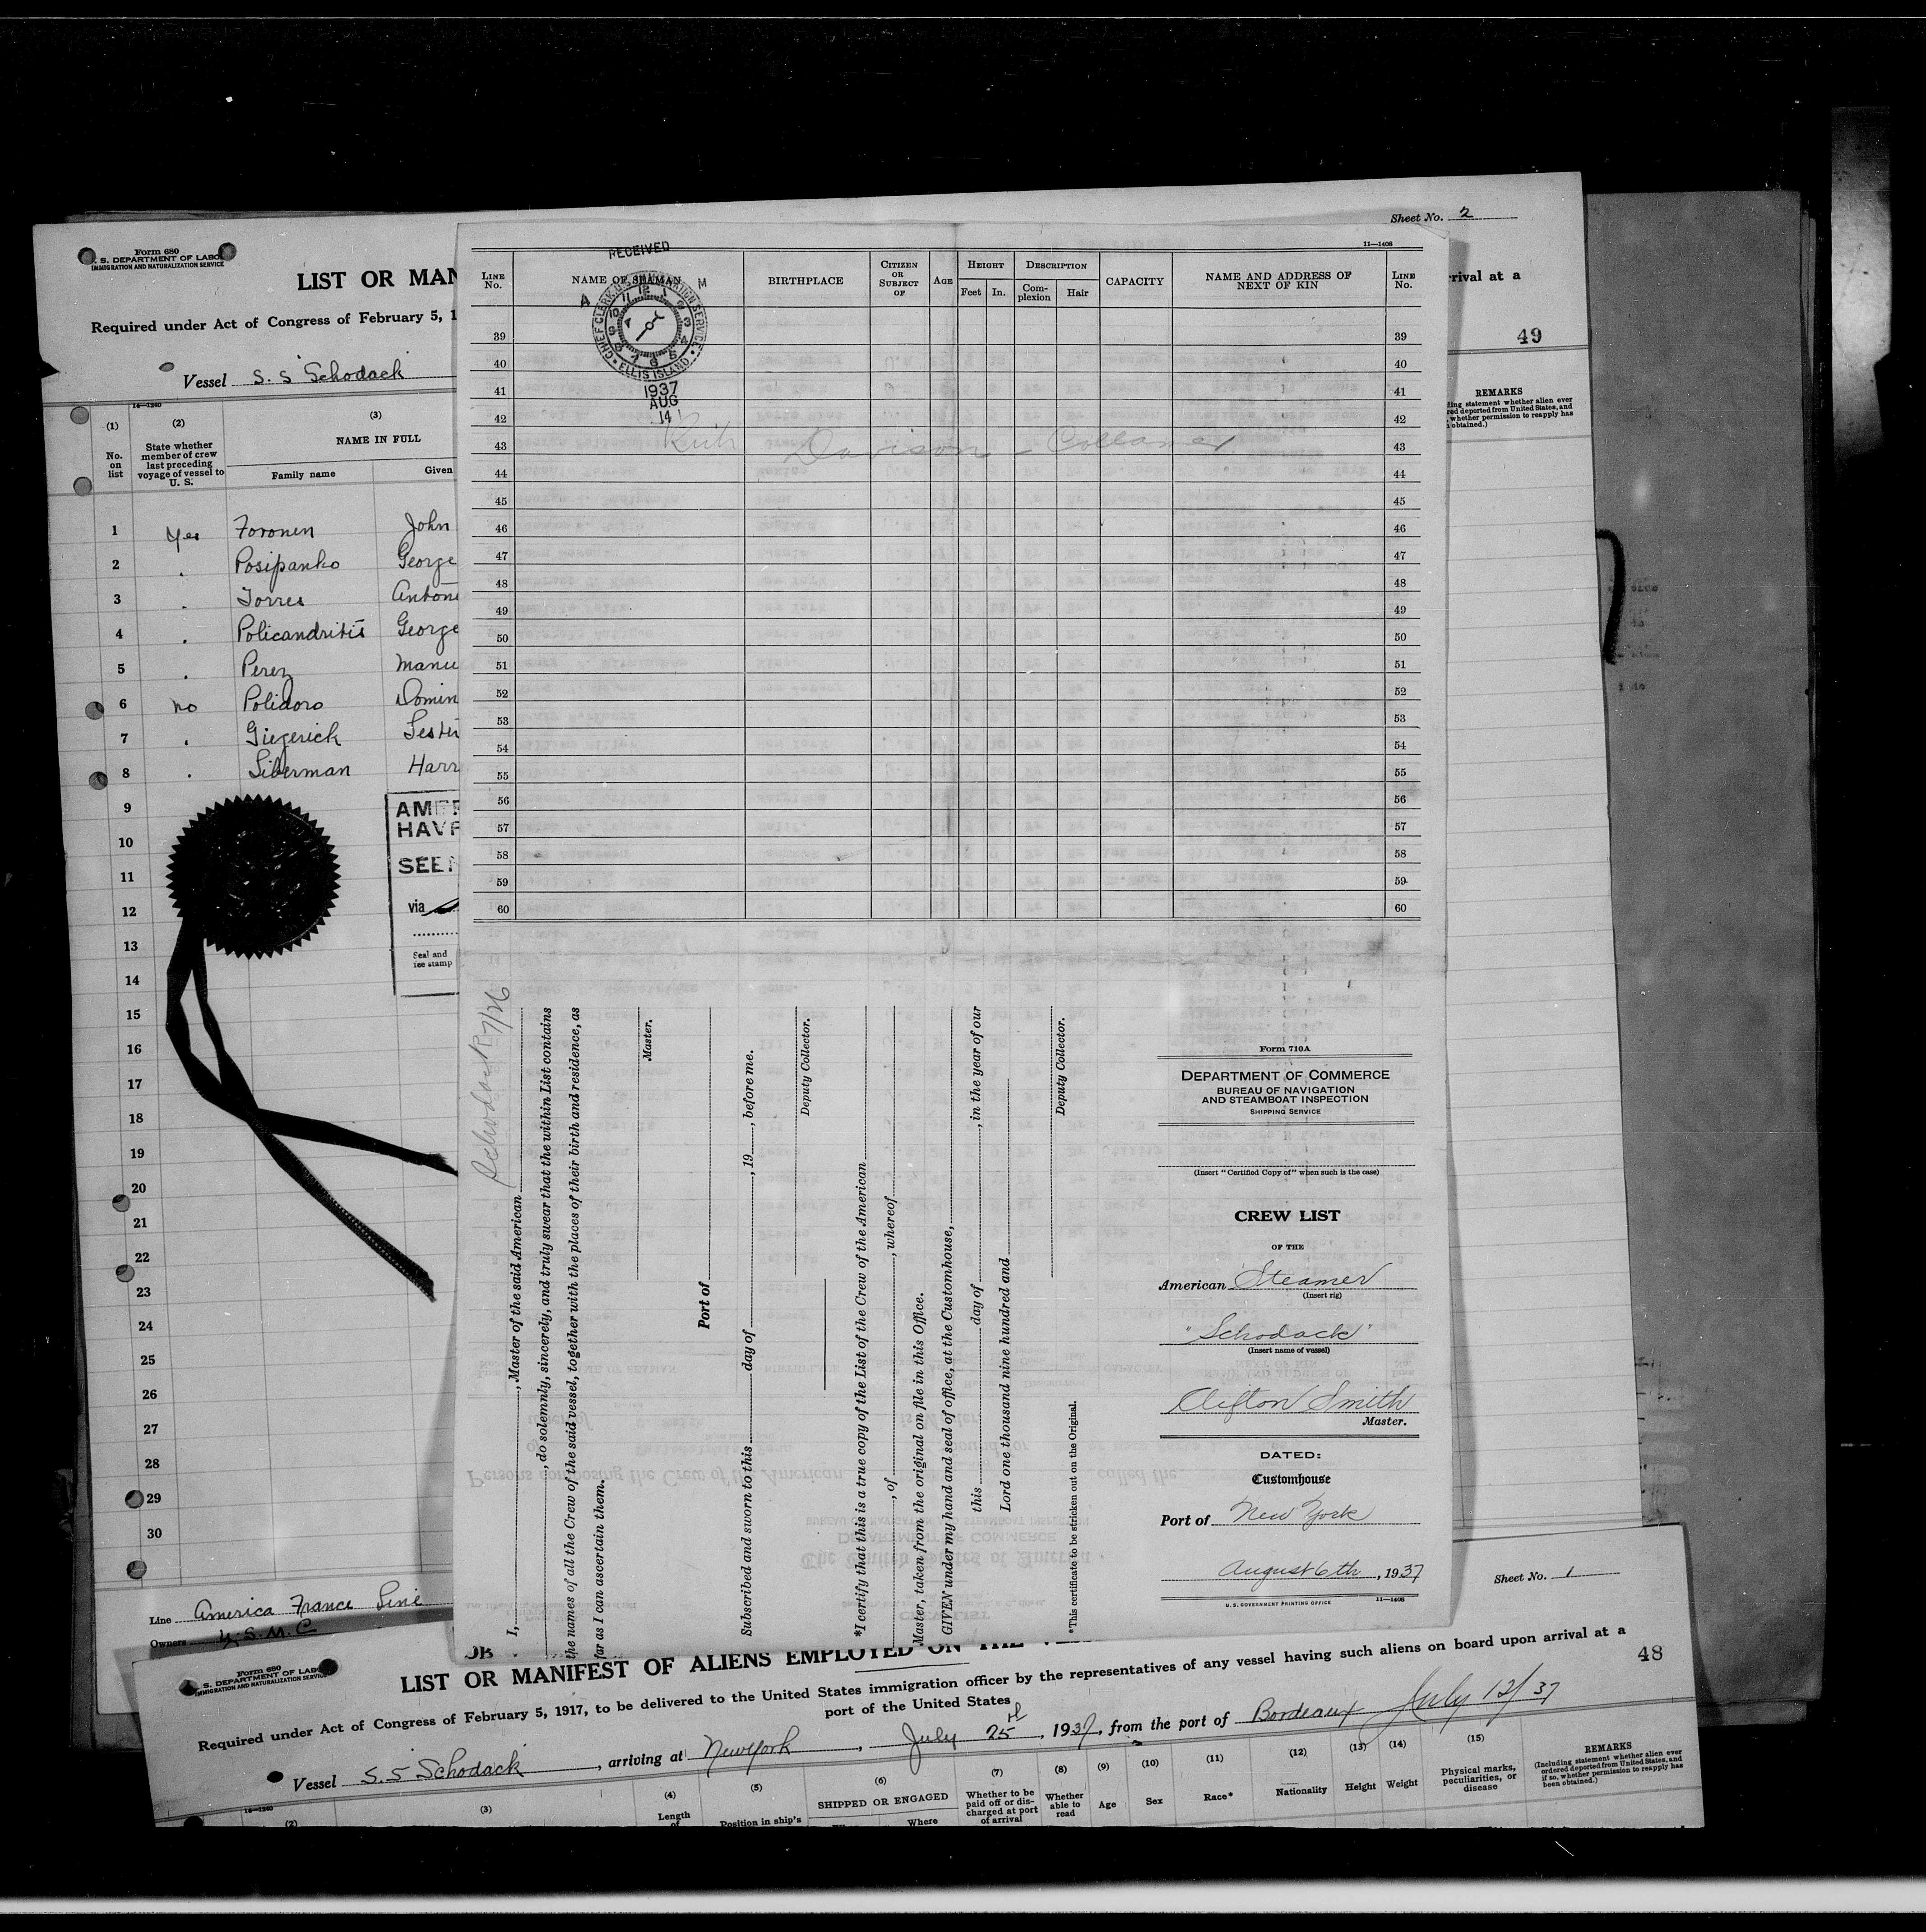 Form 680
U. S. DEPARTMENT OF LABOR
IMMIGRATION AND NATURALIZATION SERVICE
LIST OR MAN
Required under Act of Congress of February 5, 1
Vessel S. S Schodack
14—1240
(1) (2) (3)
No. on list
State whether member of crew last preceding voyage of vessel to U. S.
NAME IN FULL
Family name Given
1 Yes Toronen John
2 . Posipanko George
3 . Torres Antoni
4 . Policandritis George
5 . Perez Manu
6 no Polidoro Domin
7 . Giegerick Lester
8 . Liberman Harr
9
10
11
12
13
14
15
16
17
18
19
20
21
22
23
24
25
26
27
28
29
30
AMER
HAVR
SEEN
via
Seal and
fee stamp
Line America France Line
Owners U.S.M.C
Sheet No. 2
rival at a
49
REMARKS
ding statement whether alien ever
red deported from United States, and
, whether permission to reapply has
obtained.)
11—1408
LINE No.
NAME OF SEAMAN
BIRTHPLACE
CITIZEN OR SUBJECT OF
AGE
HEIGHT
Feet In.
DESCRIPTION
Complexion Hair
CAPACITY
NAME AND ADDRESS OF NEXT OF KIN
LINE No.
RECEIVED
A M
CHIEF CLERK U.S. IMMIGRATION SERVICE
ELLIS ISLAND
1937
AUG
14
39 39
40 40
41 41
42 42
43 Davison - 43
44 44
45 45
46 46
47 47
48 48
49 49
50 50
51 51
52 52
53 53
54 54
55 55
56 56
57 57
58 58
59 59
60 60
Schodack 7/26
I, , Master of the said American
, do solemnly, sincerely, and truly swear that the within List contains
the names of all the Crew of the said vessel, together with the places of their birth and residence, as
far as I can ascertain them.
Master.
Port of
Subscribed and sworn to this day of , 19 , before me.
Deputy Collector.
*I certify that this is a true copy of the List of the Crew of the American
, of , whereof
Master, taken from the original on file in this Office.
GIVEN under my hand and seal of office, at the Customhouse,
this day of , in the year of our
Lord one thousand nine hundred and
Deputy Collector.
*This certificate to be stricken out on the Original.
Form 710A
DEPARTMENT OF COMMERCE
BUREAU OF NAVIGATION
AND STEAMBOAT INSPECTION
SHIPPING SERVICE
(Insert "Certified Copy of" when such is the case)
CREW LIST
OF THE
American Steamer
(Insert rig)
"Schodack"
(Insert name of vessel)
Clifton Smith
Master.
DATED:
Customhouse
Port of New York
August 6th, 1937
U. S. GOVERNMENT PRINTING OFFICE 11—1408
Sheet No. 1
48
Form 680
U. S. DEPARTMENT OF LABOR
IMMIGRATION AND NATURALIZATION SERVICE
LIST OR MANIFEST OF ALIENS EMPLOYED ON THE
Required under Act of Congress of February 5, 1917, to be delivered to the United States immigration officer by the representatives of any vessel having such aliens on board upon arrival at a
port of the United States
Vessel S. S Schodack, arriving at New York, July 25th, 1937, from the port of Bordeaux July 12/37
14—1240
(2) (3) (4) (5) (6) (7) (8) (9) (10) (11) (12) (13) (14) (15)
Length of
Position in ship's
SHIPPED OR ENGAGED
Where
Whether to be paid off or discharged at port of arrival
Whether able to read
Age
Sex
Race*
Nationality
Height
Weight
Physical marks, peculiarities, or disease
REMARKS
(Including statement whether alien ever
ordered deported from United States, and
if so, whether permission to reapply has
been obtained.)